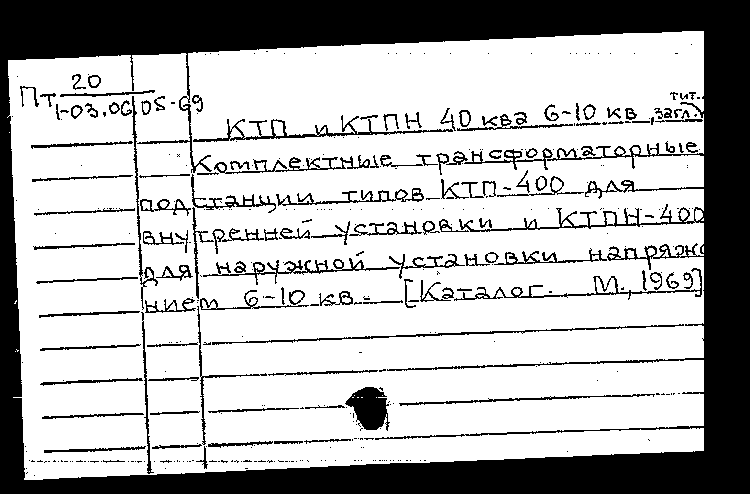 Пт 20
1-03.06.05-69
тит.
КТП и КТПН 40 ква 6-10 кв, загл.
Комплектные трансформаторные
подстанции типов КТП-400 для
внутренней установки и КТПН-400
для наружной установки напряж
нием 6-10 кв. [Каталог. М., 1969]